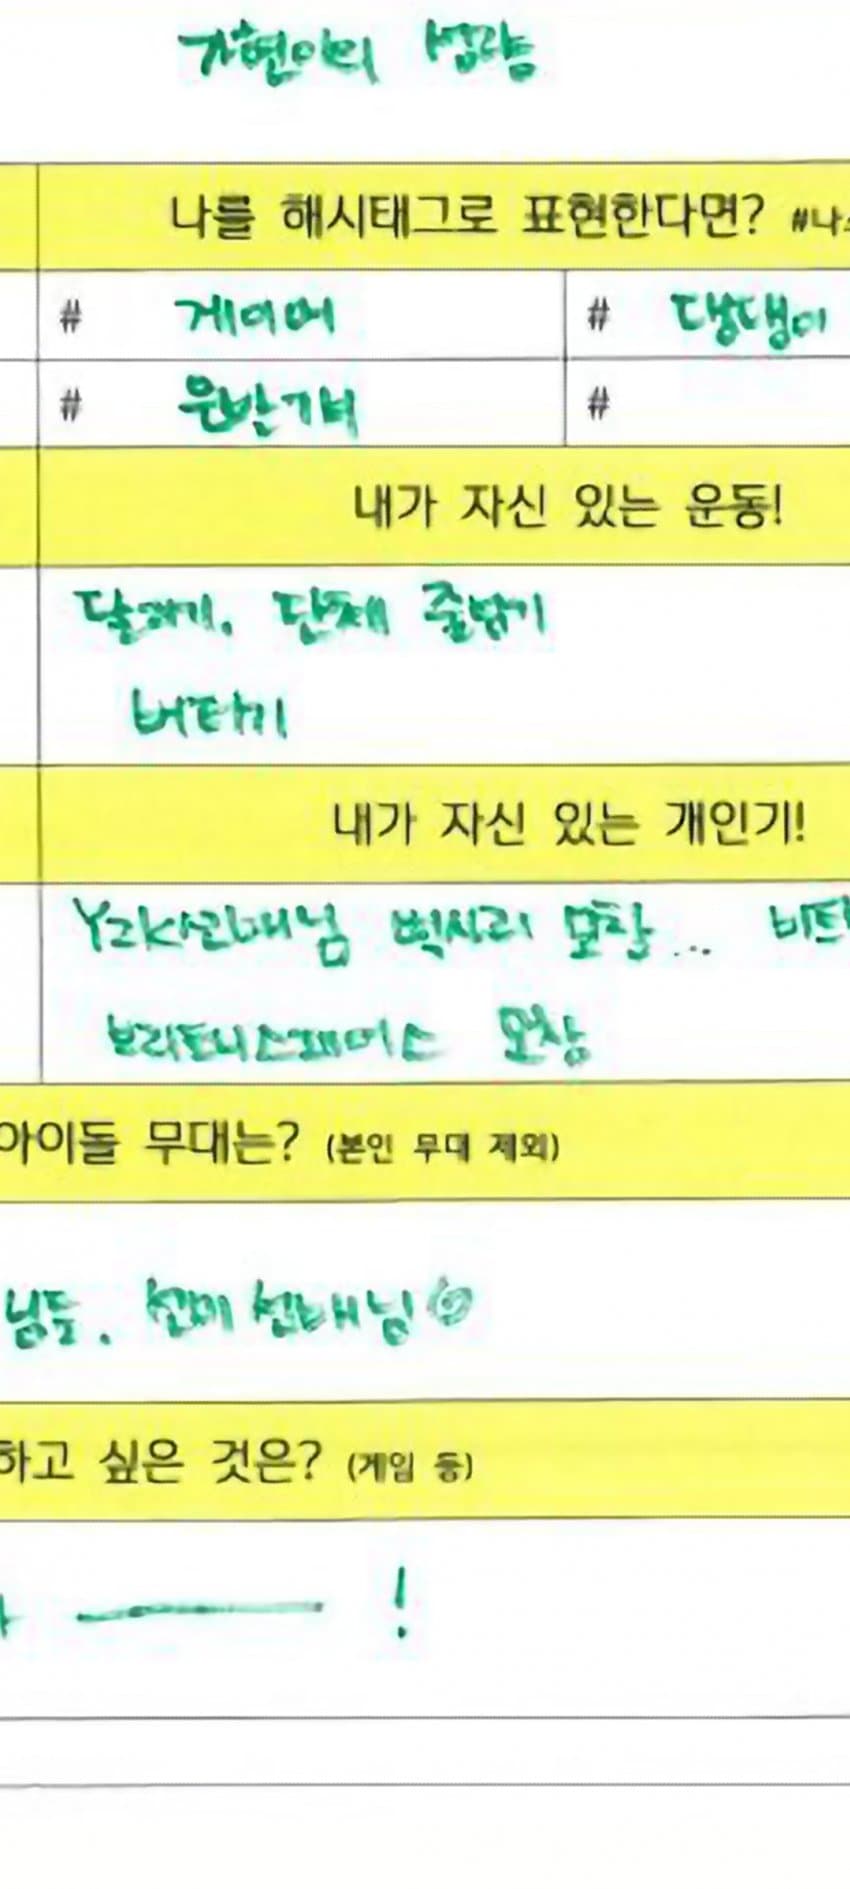 가현이의
나를 해시태그로 표현한다면? #나
# 게이머 # 댕댕이
# 운반기버 #
내가 자신 있는 운동!
달리기, 단체 줄넘기
버티기
내가 자신 있는 개인기!
선배님 모창...
브리트니스피어스 모창
아이돌 무대는? (본인 무대 제외)
님들, 선미 선배님
하고 싶은 것은? (게임 등)
!